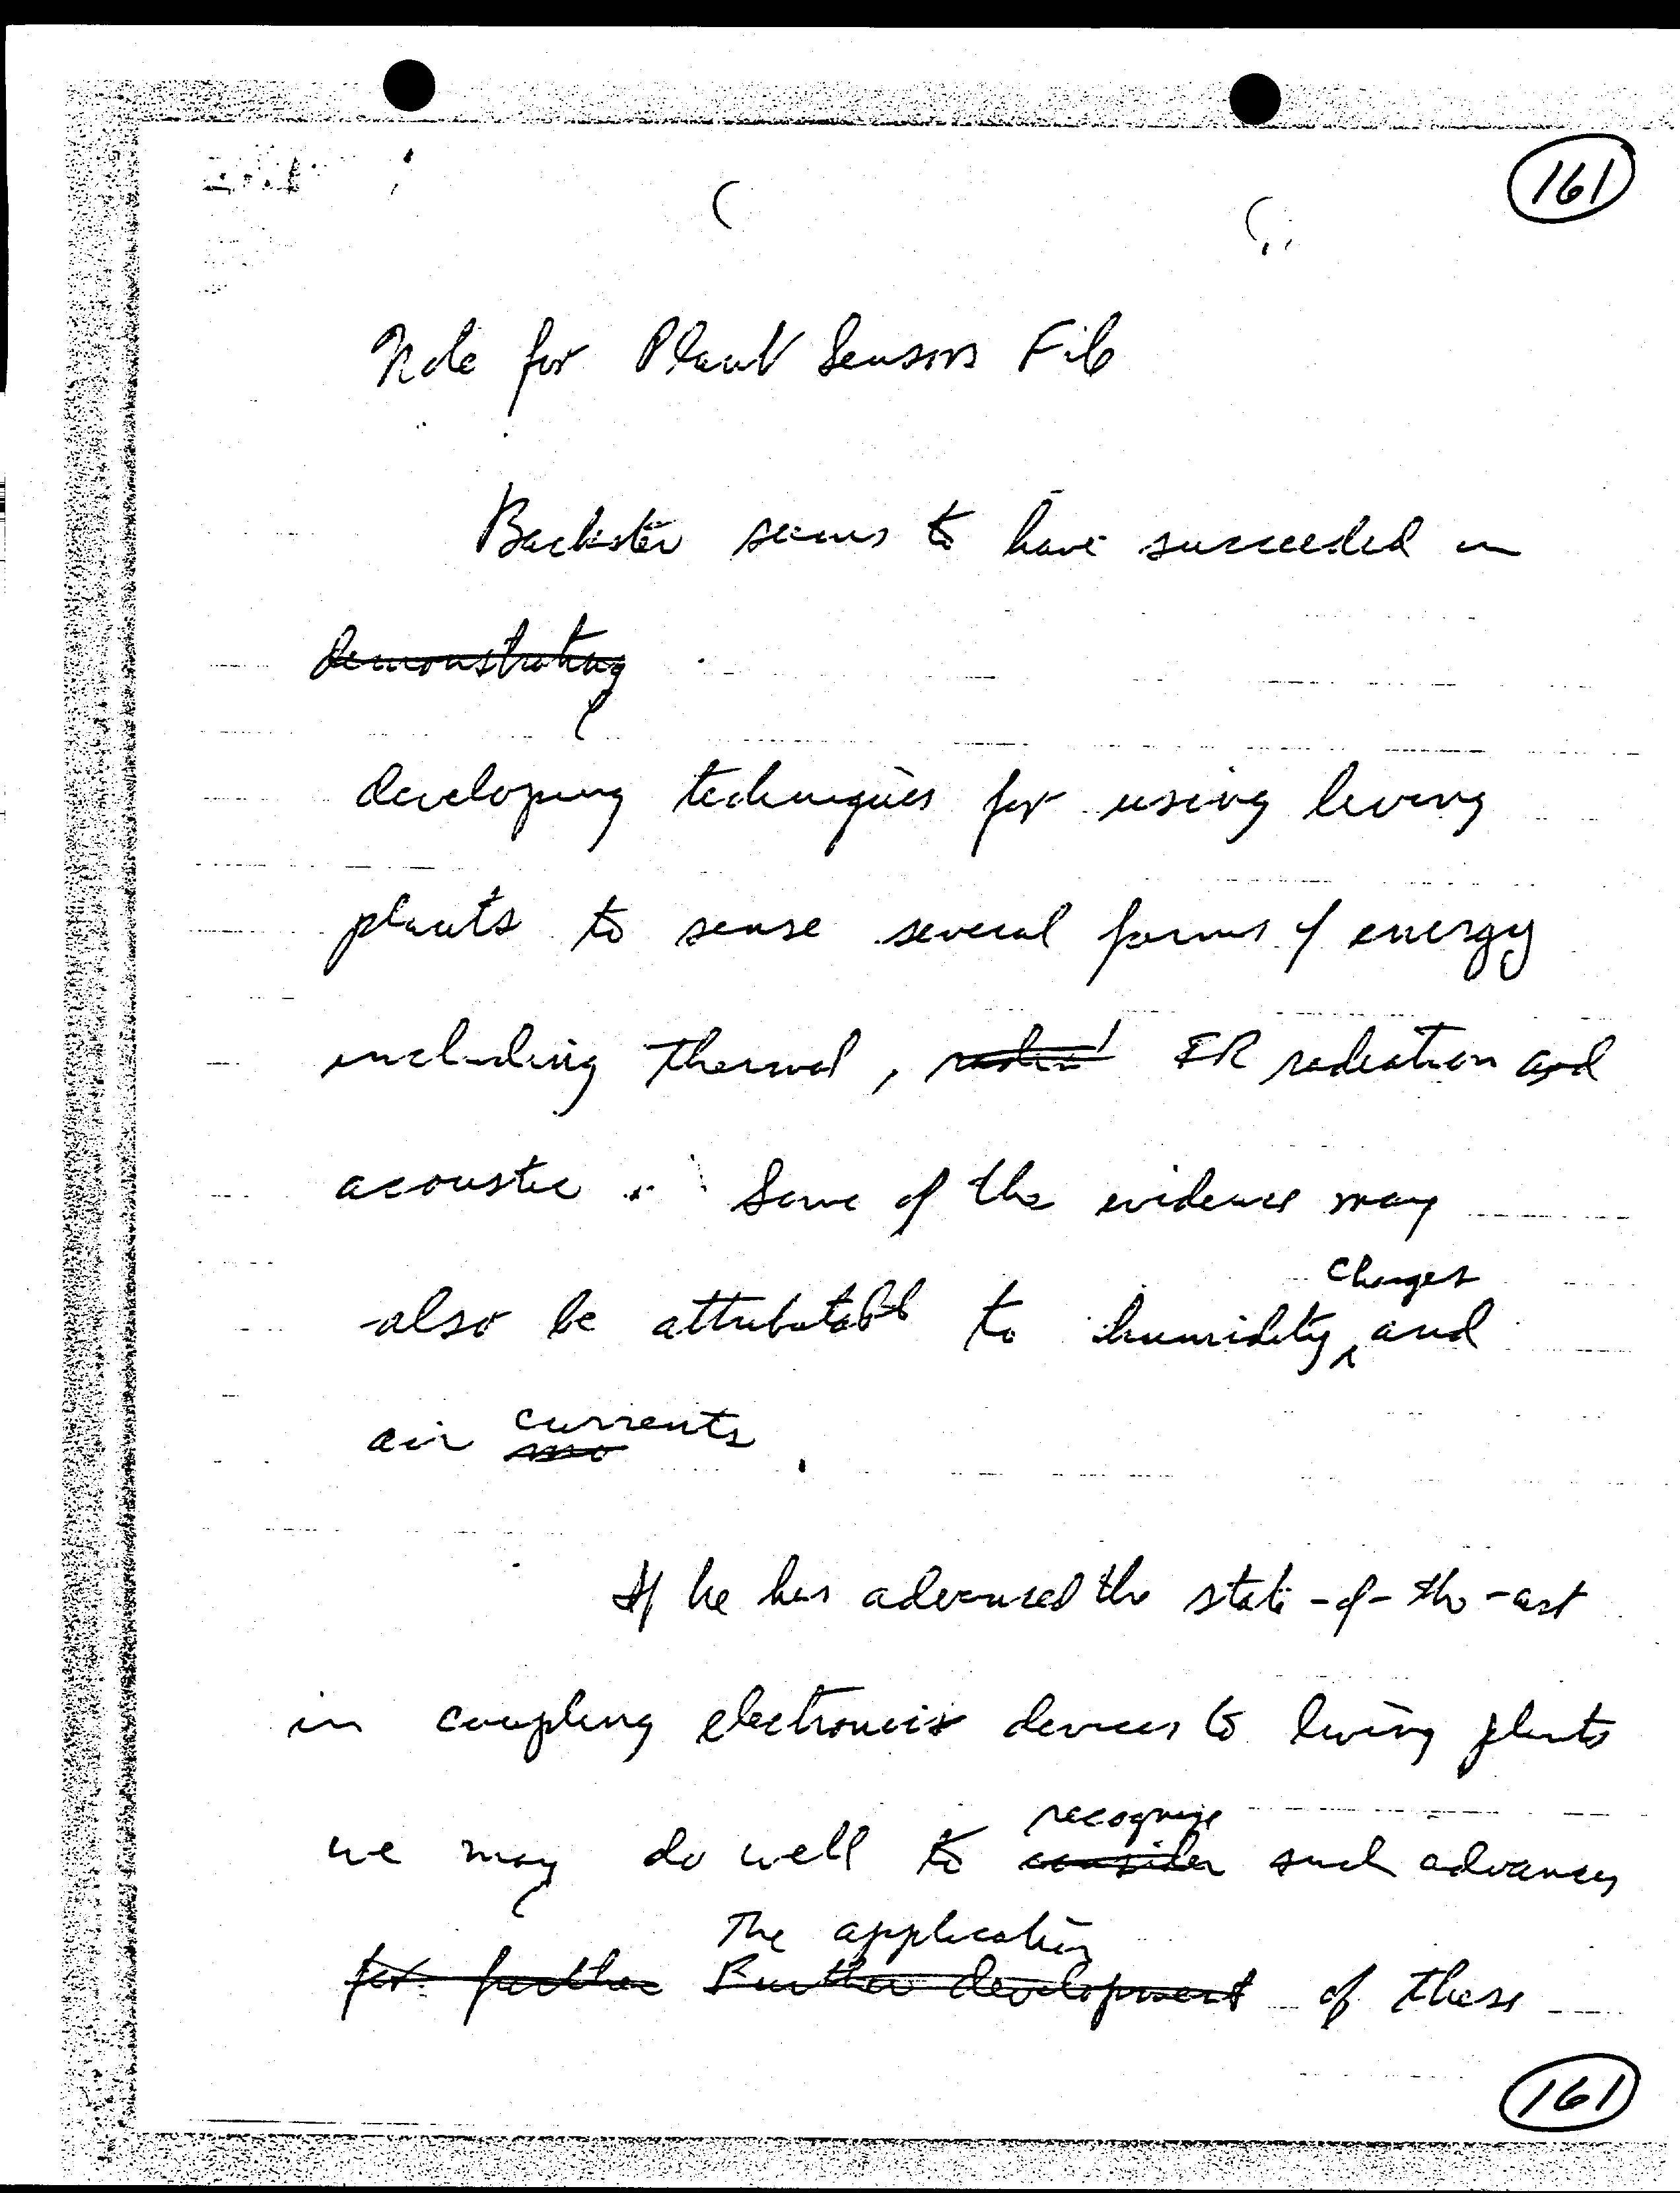 161
Note for Plant Sensors File
Backster seems to have succeeded in
demonstrating
developing techniques for using living
plants to sense several forms of energy
including thermal, IR radiation and
acoustic. Some of the evidence may
changes
also be attributable to humidity ^ and
currents
air
If he has advanced the state-of-the-art
in coupling electronics devices to living plants
recognize
we may do well to consider such advances
The application
for further Further development of these
161